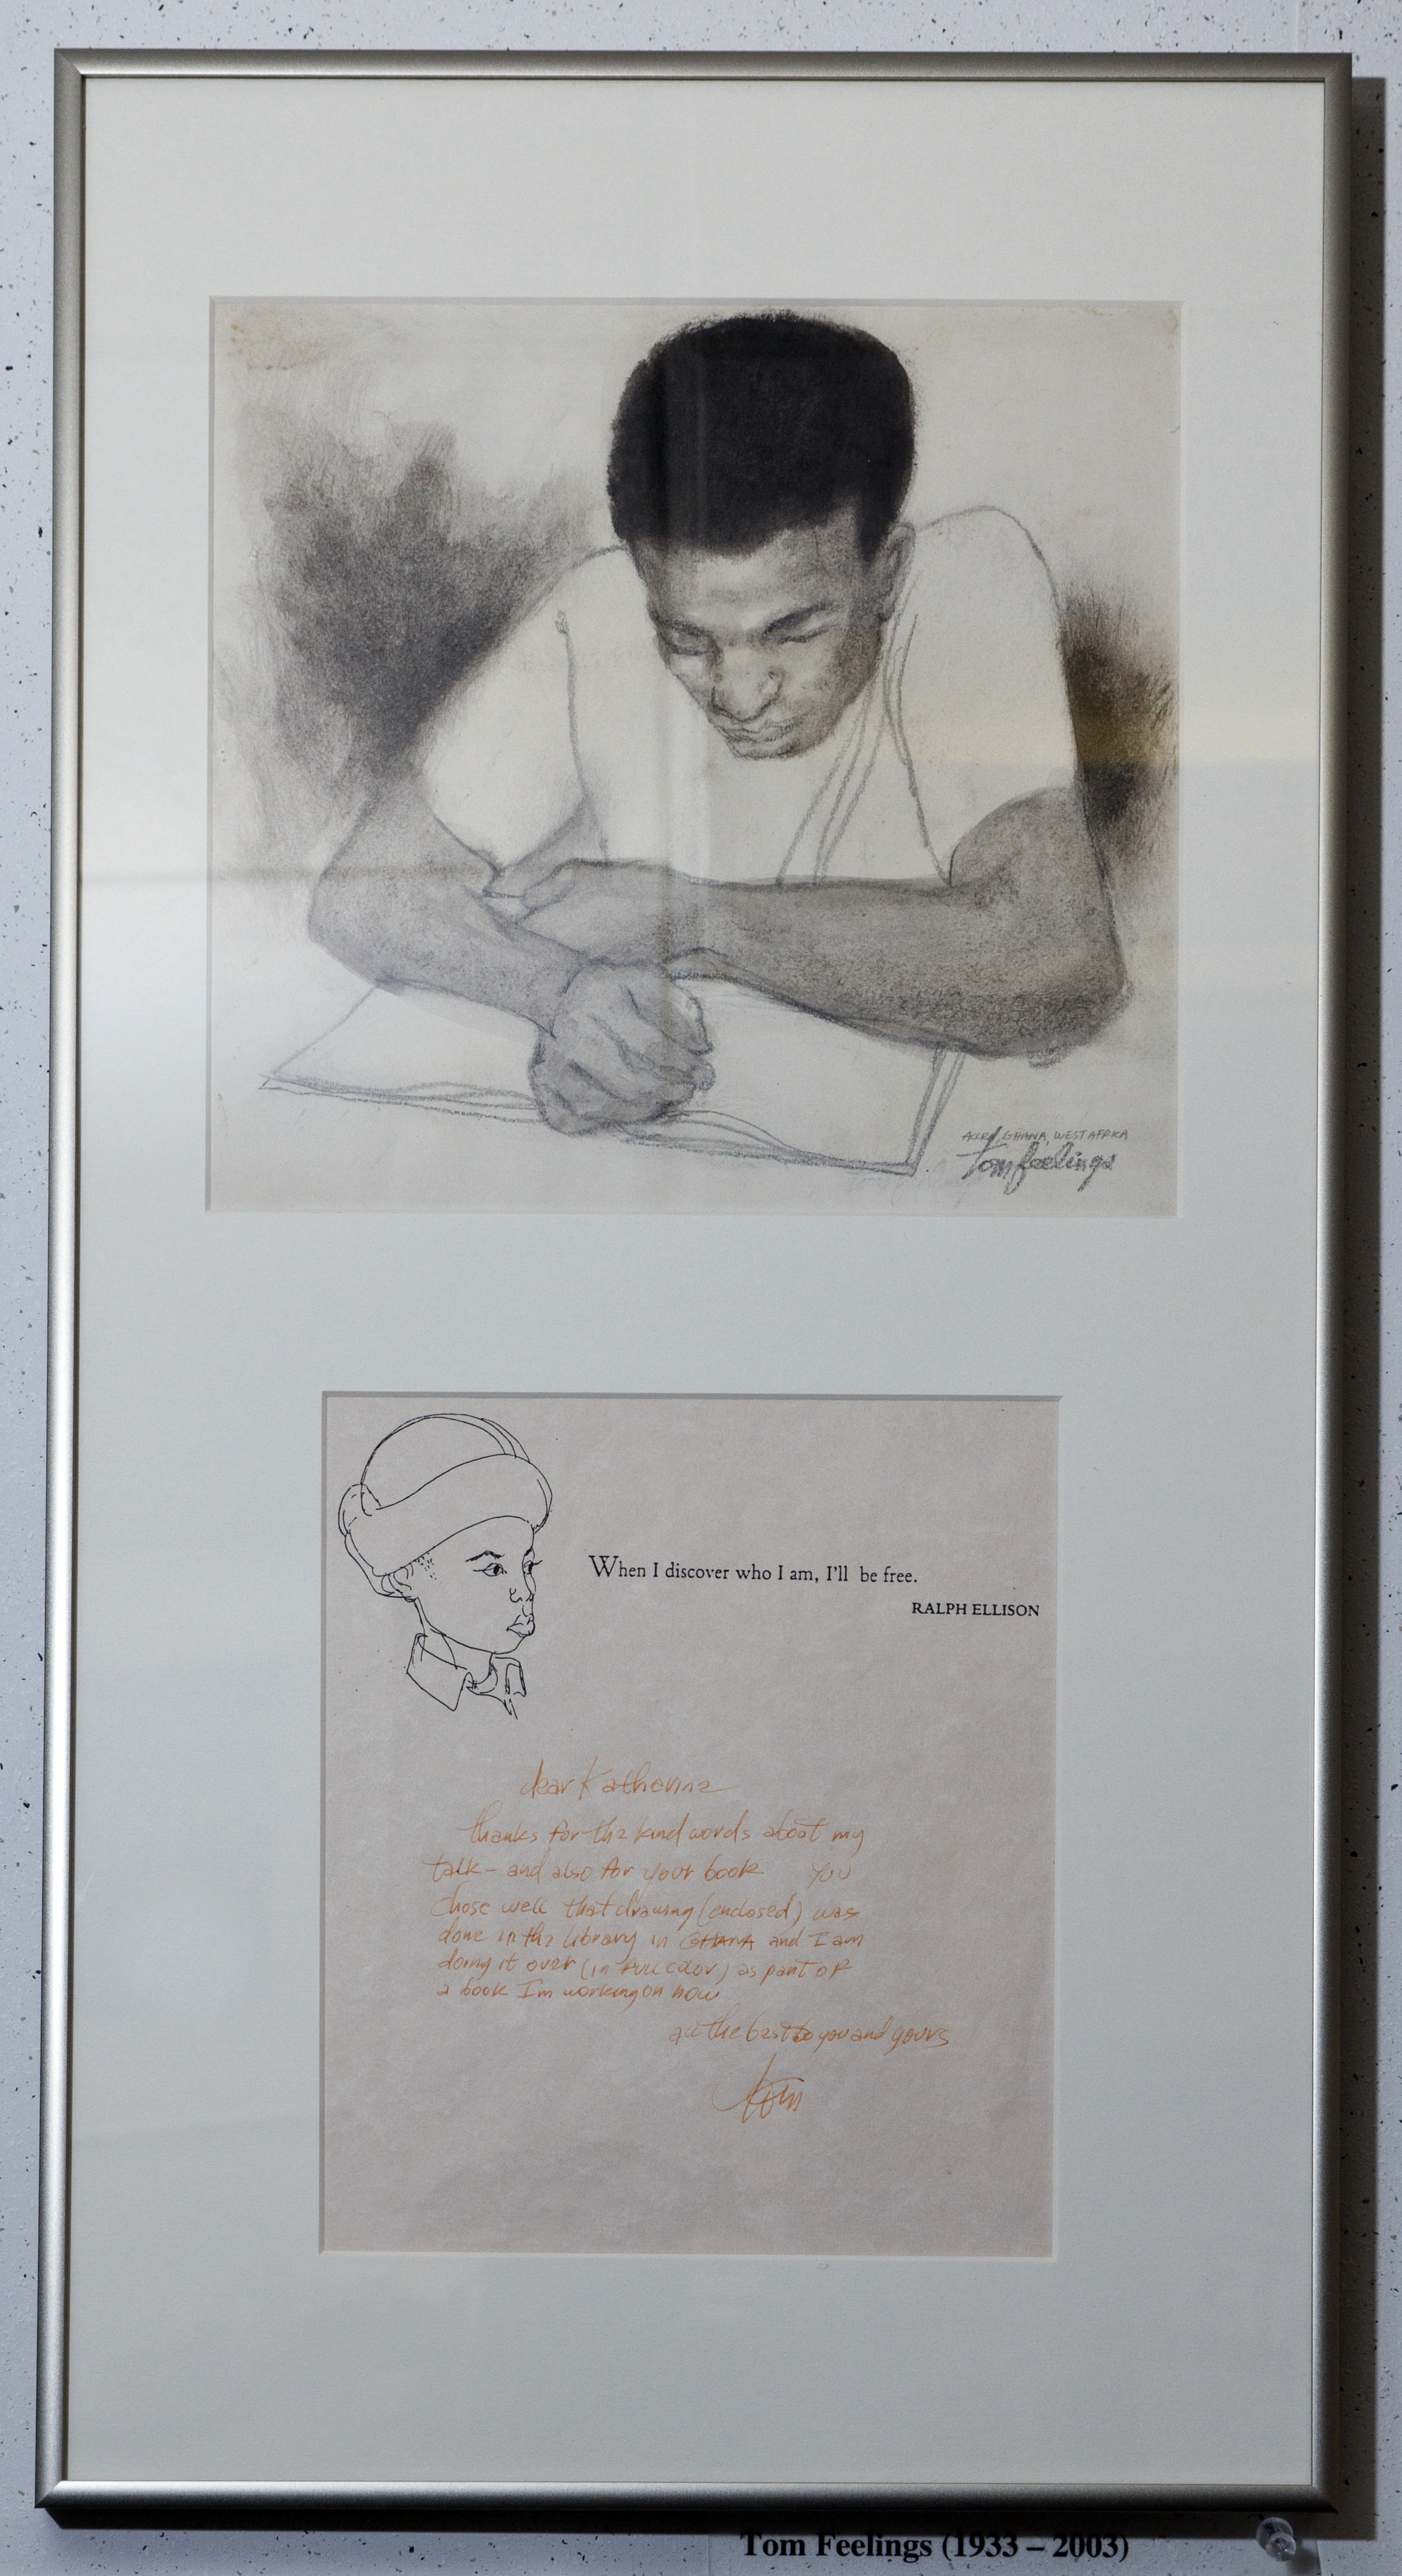 ACCRA, GHANA, WEST AFRICA
tom feelings
When I discover who I am, I'll be free.
RALPH ELLISON
dear Katherine
thanks for the kind words about my
talk – and also for your book you
chose well that drawing (enclosed) was
done in the library in GHANA and I am
doing it over (in full color) as part of
a book I'm working on now
all the best to you and yours
tom
Tom Feelings (1933 – 2003)